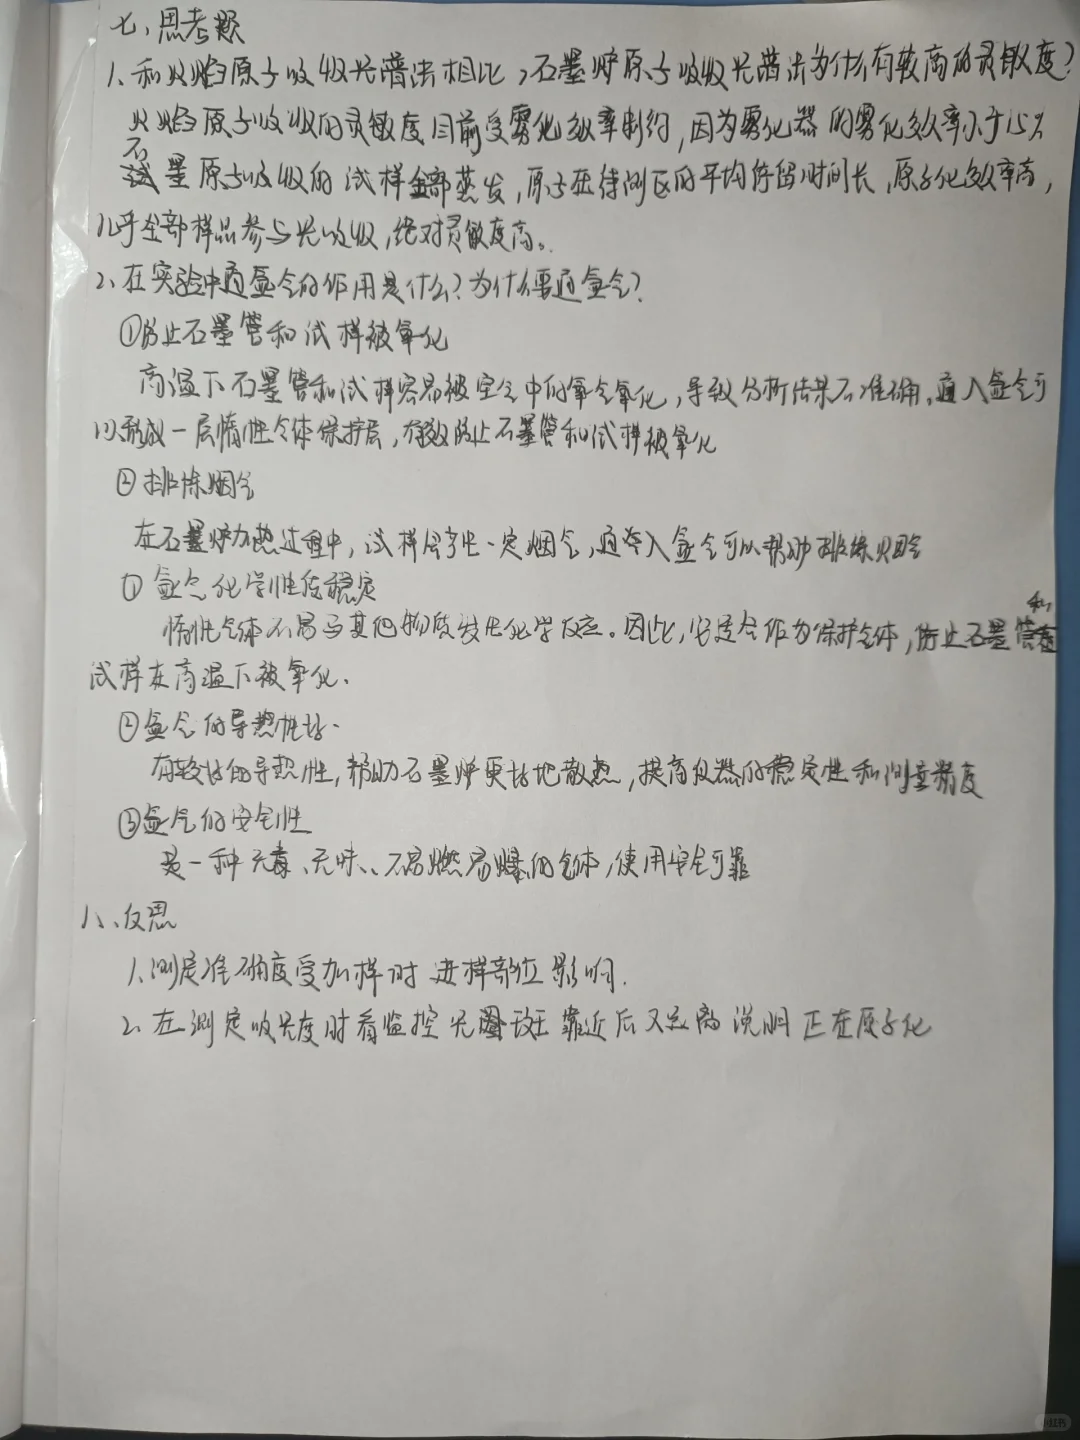 七、思考题
1、和火焰原子吸收光谱法相比,石墨炉原子吸收光谱法为什么有较高的灵敏度?
火焰原子吸收的灵敏度目前受雾化效率制约,因为雾化器的雾化效率小于15%
石墨原子吸收的试样全部蒸发,原子在待测区的平均停留时间长,原子化效率高,
几乎全部样品参与光吸收,绝对灵敏度高。
2、在实验中通氩气的作用是什么?为什么要通氩气?
①防止石墨管和试样被氧化
高温下石墨管和试样容易被空气中的氧气氧化,导致分析结果不准确。通入氩气可
以形成一层惰性气体保护层,有效防止石墨管和试样被氧化
②排除烟气
在石墨炉加热过程中,试样会产生一定烟气,通入氩气可以帮助排除烟气
①氩气化学性质稳定
惰性气体不易与其他物质发生化学反应。因此,它适合作为保护气体,防止石墨管和
试样在高温下被氧化.
②氩气的导热性好.
有较好的导热性,帮助石墨炉更好地散热,提高仪器的稳定性和测量精度
③氩气的安全性
是一种无毒、无味、不易燃易爆的气体,使用安全可靠
八、反思
1.测定准确度受加样时进样部位影响.
2.在测定吸光度时看监控光圈斑靠近后又远离说明正在原子化